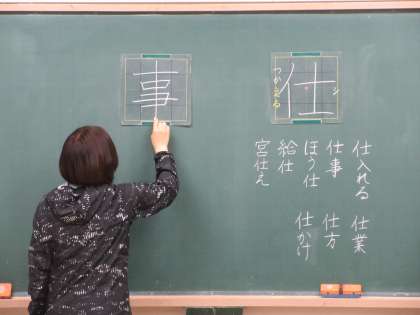 仕
シ
つかえる
仕入れる 仕業
仕事 仕方
ほう仕 仕かけ
給仕
宮仕え
事